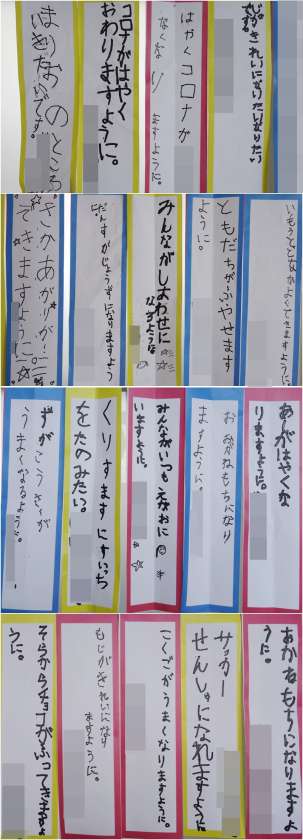 はやくコロナが
なくなりますように。
コロナがはやく
おわりますように。
のところ
いきたいです。
いもうととなかよくできますように。
ともだちがふやせます
ように。
みんながしあわせに
なりますように
だんすがじょうずになりますよう
に。
さかあがりが
できますように
あしがはやくな
りますように。
おかねもちになり
ますように。
みんながいつもえがおに
いますように。
くりすますにすいっち
をたのみたい。
ずがこうさくが
うまくなるように。
おかねもちになりますよ
うに。
サッカー
せんしゅになれますように
こくごがうまくなりますように。
もじがきれいになり
ますように。
そらからチョコがふってきますよ
うに。